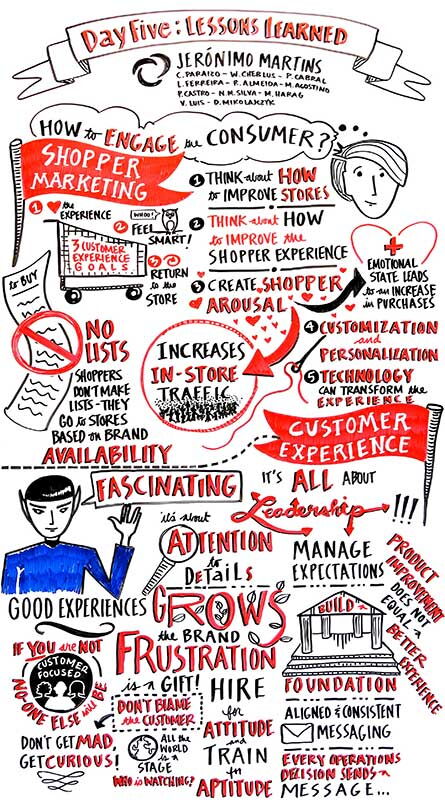 Day Five: Lessons Learned
JERÓNIMO MARTINS
C. PARAIZO - W. CHERLUS - P. CABRAL
L. FERREIRA - R. ALMEIDA - M. AGOSTINO
P. CASTRO - N. M. SILVA - M. HARAG
V. LUIS - D. MIKOLAJCZYK
HOW to ENGAGE the CONSUMER?
SHOPPER
MARKETING
1 the
EXPERIENCE
2 WHOO!
FEEL
SMART!
3 CUSTOMER
EXPERIENCE
GOALS
3
RETURN
to the
STORE
1 THINK about HOW
to IMPROVE STORES
2 THINK about HOW
to IMPROVE the
SHOPPER EXPERIENCE
3 CREATE SHOPPER
AROUSAL
EMOTIONAL
STATE LEADS
to an INCREASE
in PURCHASES
4 CUSTOMIZATION
and
PERSONALIZATION
5 TECHNOLOGY
CAN TRANSFORM the
EXPERIENCE
to BUY
NO
LISTS
SHOPPERS
DON'T MAKE
LISTS - THEY
GO to STORES
BASED on BRAND
AVAILABILITY
INCREASES
IN-STORE
TRAFFIC
CUSTOMER
EXPERIENCE
FASCINATING
IT'S ALL ABOUT
Leadership !!!
it's about
ATTENTION
to
DETAILS
MANAGE
EXPECTATIONS
PRODUCT
IMPROVEMENT
DOES NOT
EQUAL a
BETTER
EXPERIENCE
GOOD EXPERIENCES
GROWS
the BRAND
IF YOU are NOT
CUSTOMER
FOCUSED
NO ONE ELSE will BE
DON'T GET MAD,
GET CURIOUS!
FRUSTRATION
is a GIFT!
DON'T BLAME
the CUSTOMER
ALL the
WORLD
is a
STAGE
WHO is WATCHING?
HIRE
for
ATTITUDE
and
TRAIN
for
APTITUDE
BUILD a
FOUNDATION
ALIGNED & CONSISTENT
MESSAGING
EVERY OPERATIONS
DECISION SENDS a
MESSAGE...